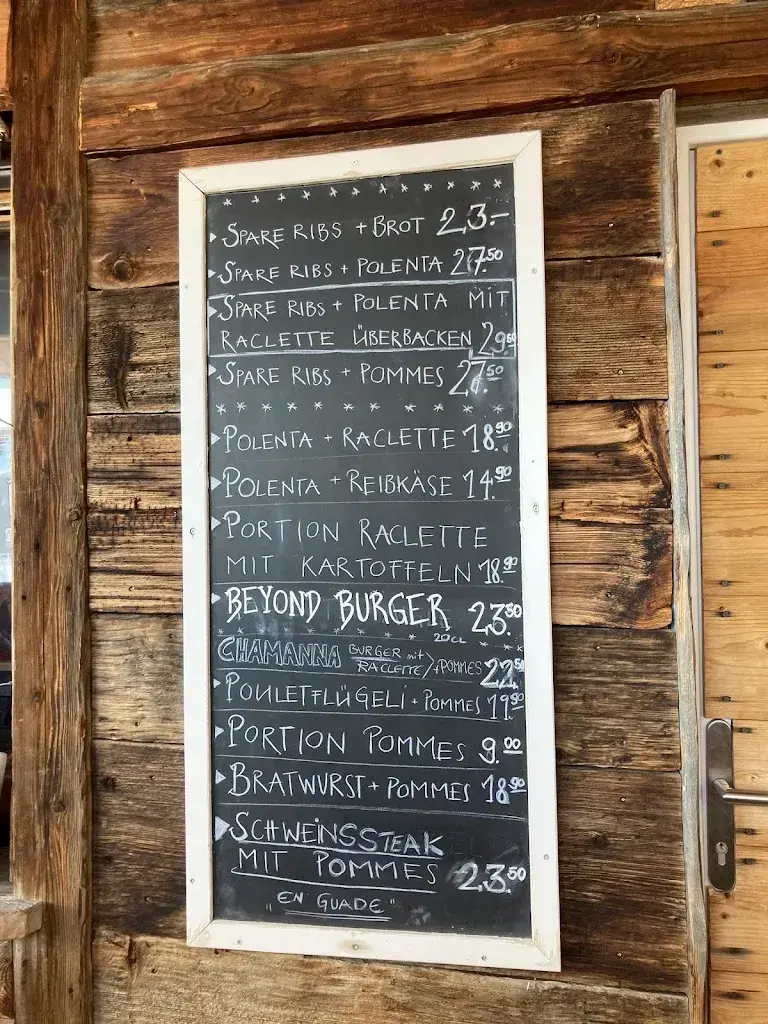 * * * * * * * * * * * *
▸ SPARE RIBS + BROT 23.-
▸ SPARE RIBS + POLENTA 27.50
▸ SPARE RIBS + POLENTA MIT
RACLETTE ÜBERBACKEN 29.50
▸ SPARE RIBS + POMMES 27.50
* * * * * * * * * * * * * *
▸ POLENTA + RACLETTE 18.90
▸ POLENTA + REIBKÄSE 14.90
▸ PORTION RACLETTE
MIT KARTOFFELN 18.90
▸ BEYOND BURGER 23.50
20CL
CHAMANNA BURGER mit RACLETTE / + POMMES 22.50
▸ POULETFLÜGELI + POMMES 19.90
▸ PORTION POMMES 9.00
▸ BRATWURST + POMMES 18.90
▸ SCHWEINSSTEAK
MIT POMMES 23.50
"EN GUADE"